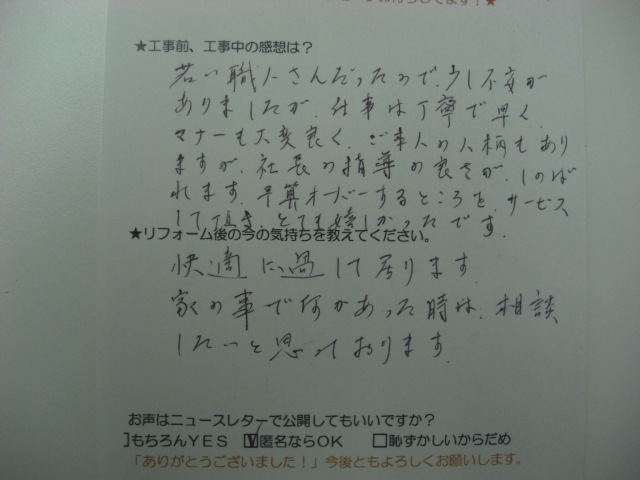 ★工事前、工事中の感想は？
若い職人さんだったので、少し不安が
ありましたが、仕事は丁寧で早く、
マナーも大変良く、ご本人の人柄もあり
ますが、社長の指導の良さが、しのば
れます。予算オーバーするところを、サービス
して頂き、とても嬉しかったです。
★リフォーム後の今の気持ちを教えてください。
快適に過して居ります。
家の事で何かあった時は、相談
したいと思っております。
お声はニュースレターで公開してもいいですか？
]もちろんＹＥＳ ☑匿名ならＯＫ □恥ずかしいからだめ
「ありがとうございました！」今後ともよろしくお願いします。